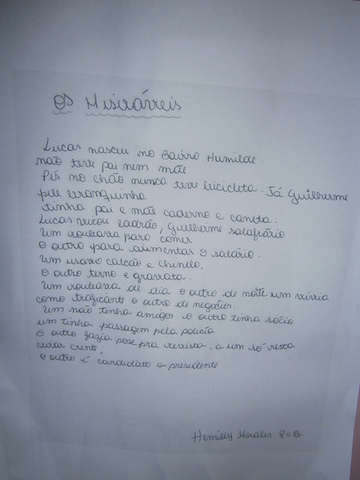 Os Miseráveis
Lucas nasceu no Bairro Humilde
não teve pai nem mãe
Pés no chão nunca teve bicicleta. Já Guilherme
pele branquinha
tinha pai e mãe caderno e caneta.
Lucas virou ladrão, Guilherme salafrário
Um roubava para comer
O outro para aumentar o salário.
Um usava calção e chinelo,
O outro terno e gravata.
Um roubava de dia o outro de noite um vivia
como traficante o outro de negócios.
Um não tinha amigos e outro tinha sócio
um tinha passagem pela polícia
O outro fazia pose pra revista, a um só resta
virar crente,
O outro é candidato a presidente
Hemilly Morales 8º B